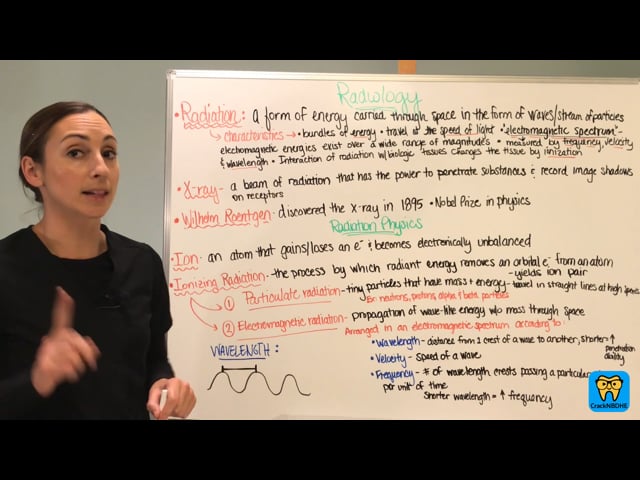 Radiology
• Radiation: a form of energy carried through space in the form of waves/stream of particles
characteristics → • bundles of energy • travel at the speed of light • "electromagnetic spectrum"-
electromagnetic energies exist over a wide range of magnitudes • measured by frequency, velocity
& wavelength • Interaction of radiation w/ biologic tissues changes the tissue by ionization
• X-ray - a beam of radiation that has the power to penetrate substances & record image shadows
on receptors
• Wilhelm Roentgen - discovered the x-ray in 1895 • Nobel Prize in physics
Radiation Physics
• Ion - an atom that gains/loses an e⁻ & becomes electronically unbalanced
• Ionizing Radiation - the process by which radiant energy removes an orbital e⁻ from an atom
- yields ion pair
① Particulate radiation - tiny particles that have mass + energy - travel in straight lines at high speeds
Ex: neutrons, protons, alpha & beta particles
② Electromagnetic radiation - propagation of wave-like energy w/o mass through space
Arranged in an electromagnetic spectrum according to:
WAVELENGTH:
• Wavelength - distance from 1 crest of a wave to another, shorter = ↑
penetration
ability
• Velocity - speed of a wave
• Frequency - # of wavelength crests passing a particular
per unit of time
Shorter wavelength = ↑ frequency
CrackNBDHE